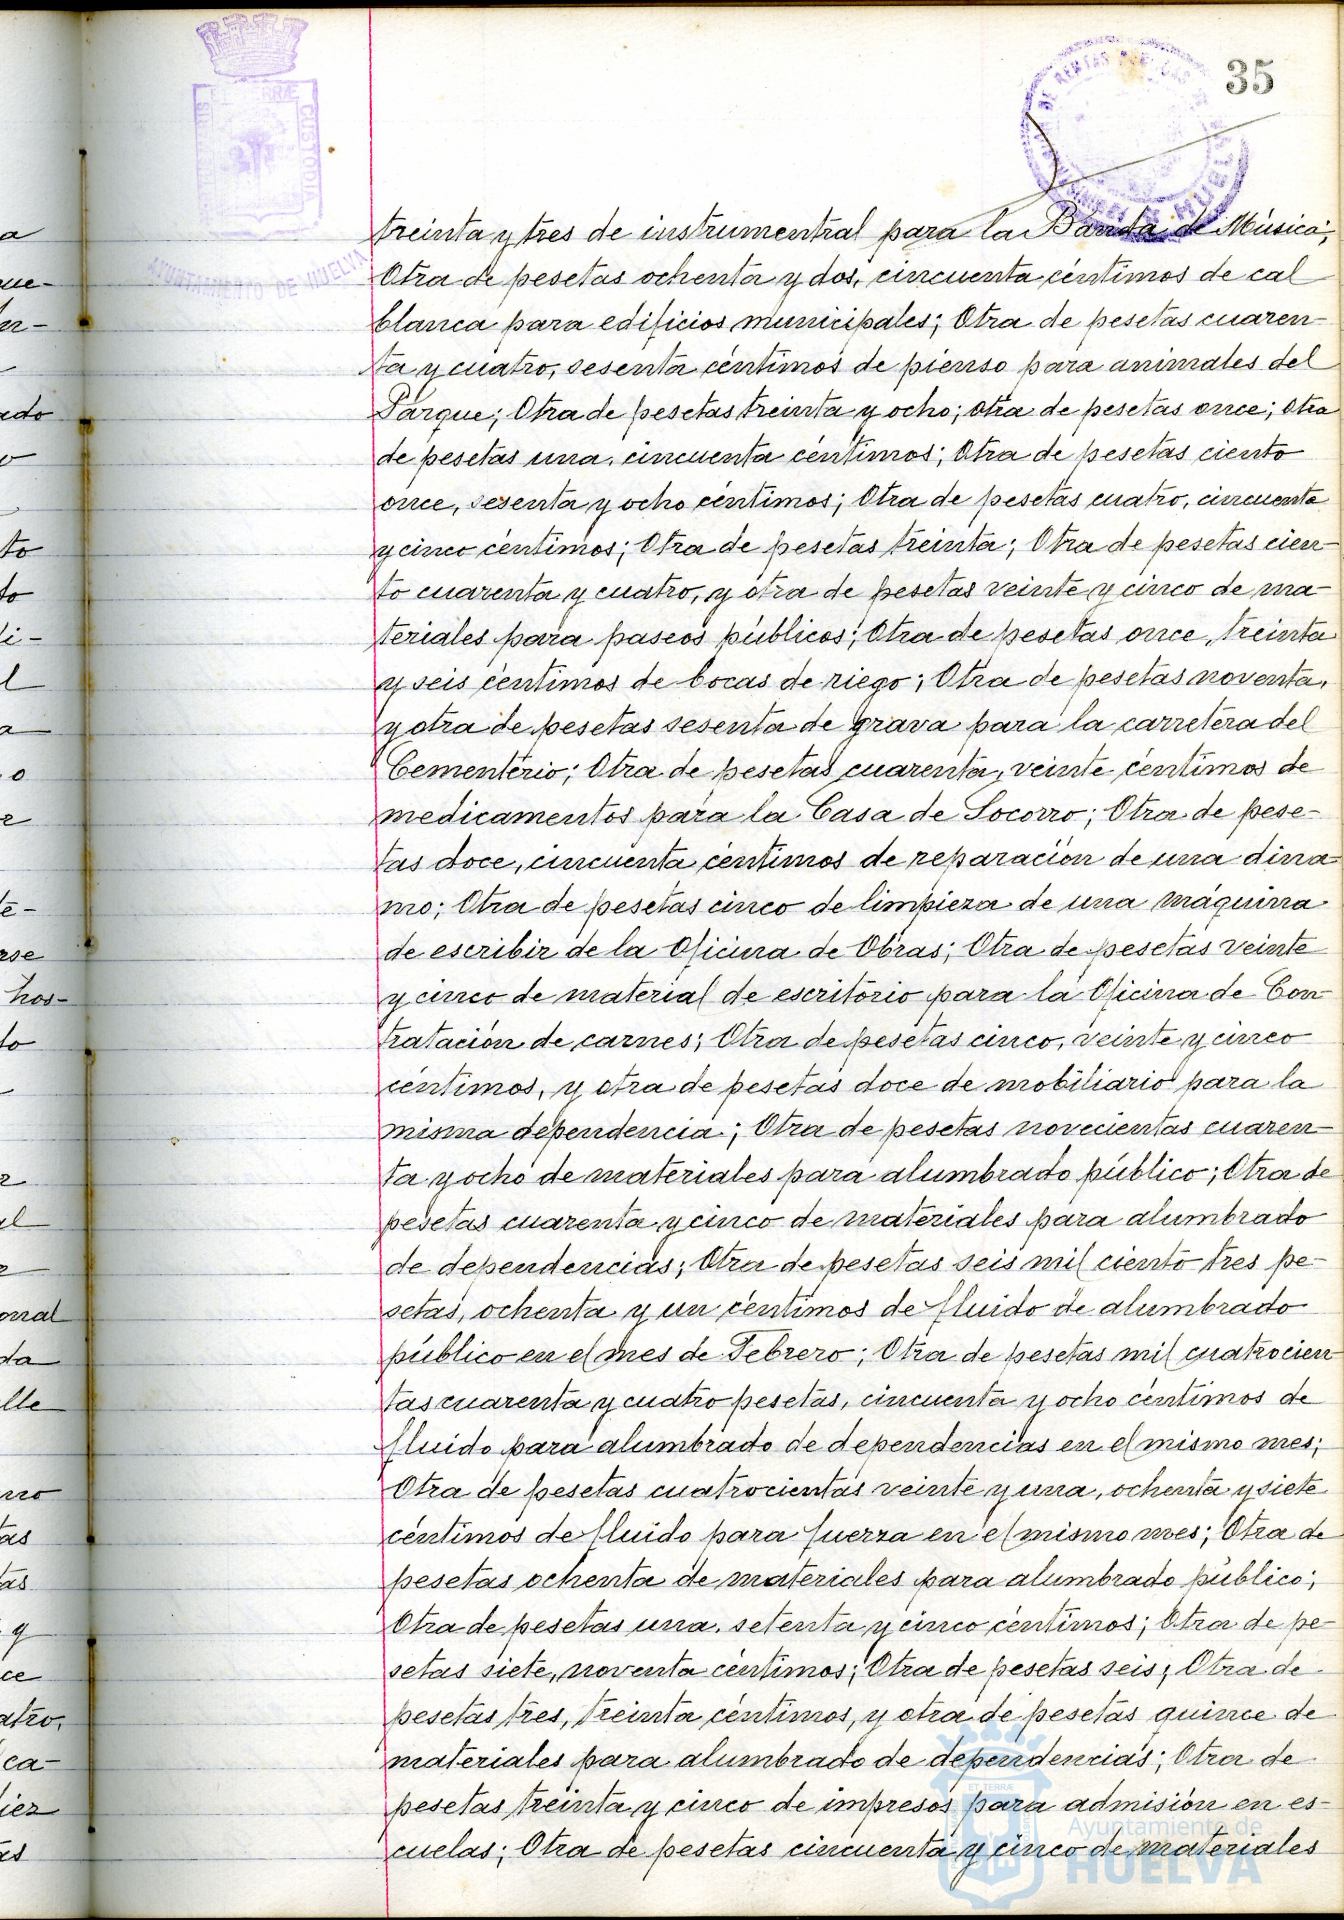 35
AYUNTAMIENTO DE HUELVA
treinta y tres de instrumentral para la Banda de Música;
Otra de pesetas ochenta y dos, cincuenta céntimos de cal
blanca para edificios municipales; Otra de pesetas cuaren-
ta y cuatro, sesenta céntimos de pienso para animales del
Parque; Otra de pesetas treinta y ocho; otra de pesetas once; otra
de pesetas una, cincuenta céntimos; Otra de pesetas ciento
once, sesenta y ocho céntimos; Otra de pesetas cuatro, cincuenta
y cinco céntimos; Otra de pesetas treinta; Otra de pesetas cien-
to cuarenta y cuatro, y otra de pesetas veinte y cinco de ma-
teriales para paseos públicos; Otra de pesetas once, treinta
y seis céntimos de bocas de riego; Otra de pesetas noventa,
y otra de pesetas sesenta de grava para la carretera del
Cementerio; Otra de pesetas cuarenta, veinte céntimos de
medicamentos para la Casa de Socorro; Otra de pese-
tas doce, cincuenta céntimos de reparación de una dina-
mo; Otra de pesetas cinco de limpieza de una máquina
de escribir de la Oficina de Obras; Otra de pesetas veinte
y cinco de material de escritorio para la Oficina de Con-
tratación de carnes; Otra de pesetas cinco, veinte y cinco
céntimos, y otra de pesetas doce de mobiliario para la
misma dependencia; Otra de pesetas novecientas cuaren-
ta y ocho de materiales para alumbrado público; Otra de
pesetas cuarenta y cinco de materiales para alumbrado
de dependencias; Otra de pesetas seis mil ciento tres pe-
setas, ochenta y un céntimos de fluido de alumbrado
público en el mes de Febrero; Otra de pesetas mil cuatrocien-
tas cuarenta y cuatro pesetas, cincuenta y ocho céntimos de
fluido para alumbrado de dependencias en el mismo mes;
Otra de pesetas cuatrocientas veinte y una, ochenta y siete
céntimos de fluido para fuerza en el mismo mes; Otra de
pesetas ochenta de materiales para alumbrado público;
Otra de pesetas una, setenta y cinco céntimos; Otra de pe-
setas siete, noventa céntimos; Otra de pesetas seis; Otra de
pesetas tres, treinta céntimos, y otra de pesetas quince de
materiales para alumbrado de dependencias; Otra de
pesetas treinta y cinco de impresos para admisión en es-
cuelas; Otra de pesetas cincuenta y cinco de materiales
Ayuntamiento de
HUELVA